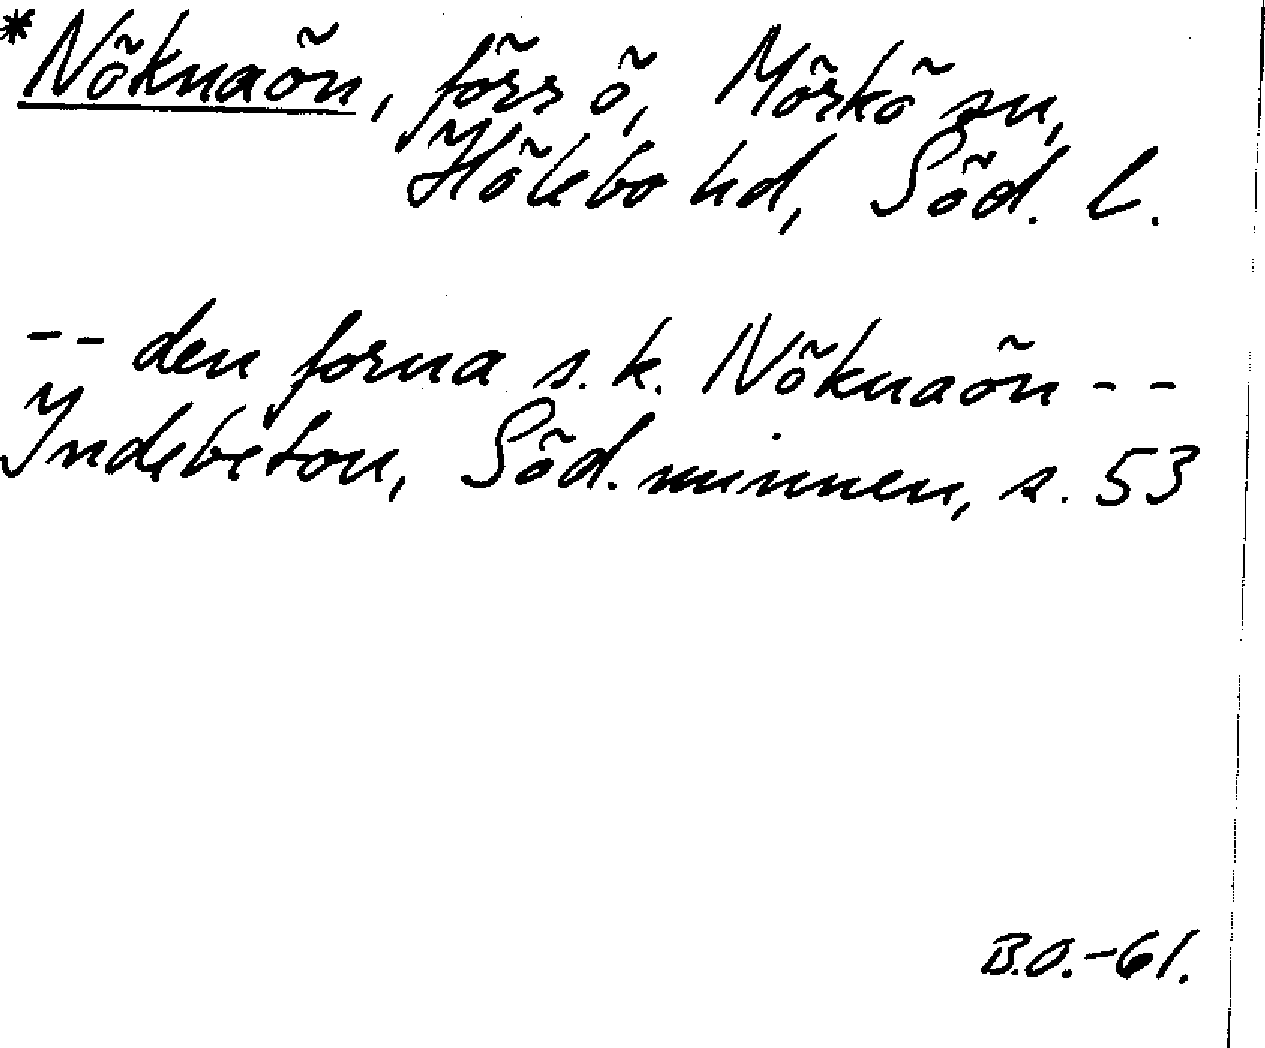 *Nöknaön, förr ö, Mörkö sn,
Hölebo hd, Söd. l.
-- den forna s.k. Nöknaön --
Indebetou, Söd. minnen, s. 53
B.O.-61.